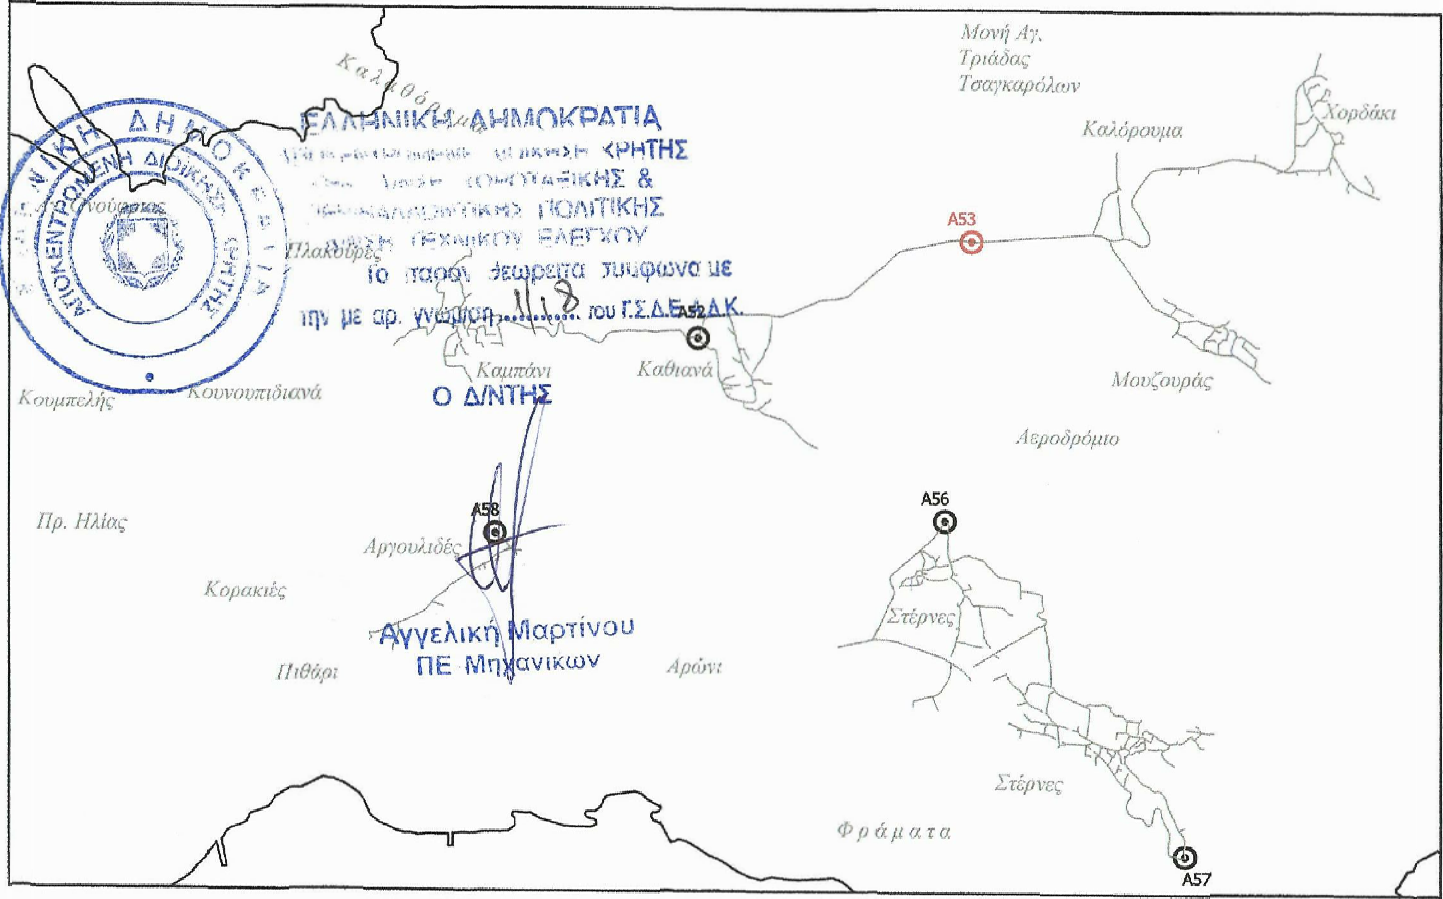 Μονή Αγ.
Τριάδας
Τσαγκαρόλων
Χορδάκι
Καλόρουμα
ΕΛΛΗΝΙΚΗ ΔΗΜΟΚΡΑΤΙΑ
ΚΡΗΤΗΣ
&
ΠΟΛΙΤΙΚΗΣ
ΤΕΧΝΙΚΟΥ ΕΛΕΓΧΟΥ
Το παρόν θεωρείται σύμφωνα με
την με αρ. γνώμ. 1/18 του Γ.Σ.Δ.Ε.Α.Δ.Κ.
ΑΠΟΚΕΝΤΡΩΜΕΝΗ ΔΙΟΙΚΗΣΗ ΚΡΗΤΗΣ
Πλακούρες
A53
A52
Καμπάνι
Καθιανά
Μουζουράς
Κουμπελής
Κουνουπιδιανά
Ο Δ/ΝΤΗΣ
Αεροδρόμιο
A58
A56
Πρ. Ηλίας
Αργουλιδές
Κορακιές
Στέρνες
Αγγελική Μαρτίνου
ΠΕ Μηχανικων
Πιθάρι
Αρώνι
Στέρνες
Φράματα
A57